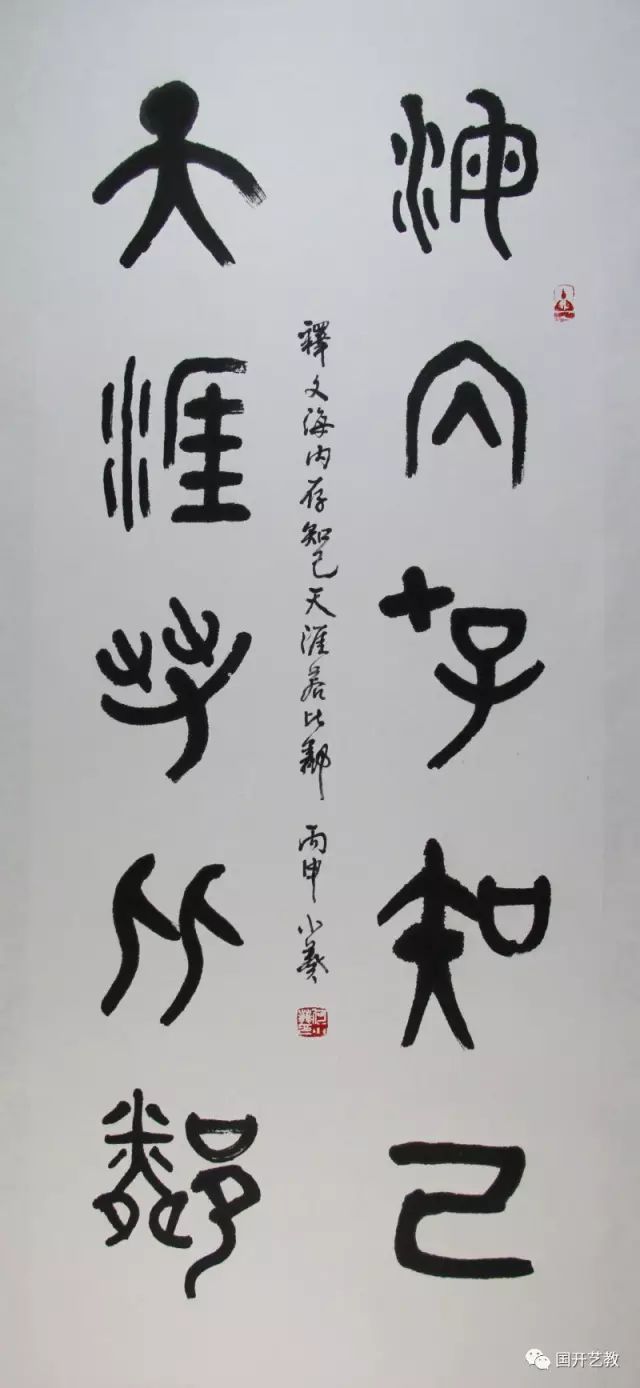 海内存知己
天涯若比鄰
釋文海内存知己天涯若比鄰 丙申 小葵
国开艺教